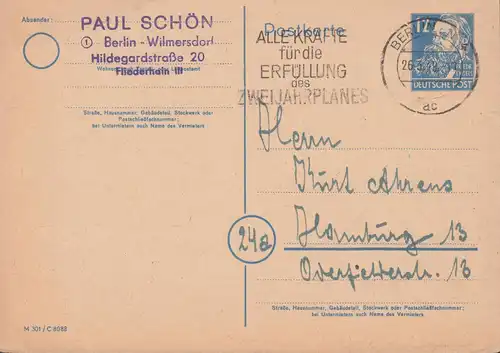 Absender:
PAUL SCHÖN
1 Berlin - Wilmersdorf
Hildegardstraße 20
Fliederhain III
Straße, Hausnummer, Gebäudeteil, Stockwerk oder
Postschließfachnummer;
bei Untermietern auch Name des Vermieters
Postkarte
ALLE KRÄFTE
für die
ERFÜLLUNG
des
ZWEIJAHRPLANES
BERLIN
ac
12
DEUTSCHE POST
Herrn
Kurt Ahrens
24a
Hamburg 13
13
Straße, Hausnummer, Gebäudeteil, Stockwerk oder Postschließfachnummer;
bei Untermietern auch Name des Vermieters
M 301 / C 8088